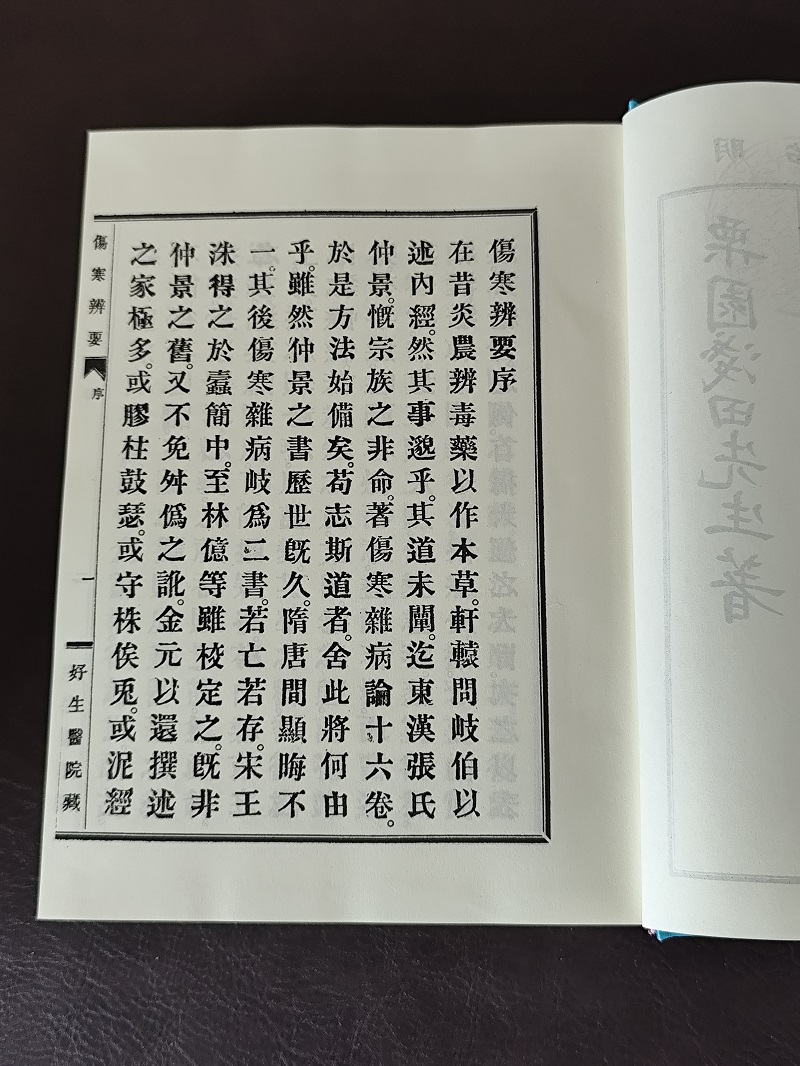 傷寒辨要序
在昔炎農辨毒藥以作本草。軒轅問岐伯以
述內經。然其事邈乎。其道未闡。迄東漢張氏
仲景。慨宗族之非命。著傷寒雜病論十六卷。
於是方法始備矣。苟志斯道者。舍此將何由
乎。雖然仲景之書歷世既久。隋唐間顯晦不
一。其後傷寒雜病岐爲二書。若亡若存。宋王
洙得之於蠹簡中。至林億等雖校定之。既非
仲景之舊。又不免舛僞之訛。金元以還撰述
之家極多。或膠柱鼓瑟。或守株俟兎。或泥經
傷寒辨要
序
一
好生醫院藏
明
栗園淺田先生著